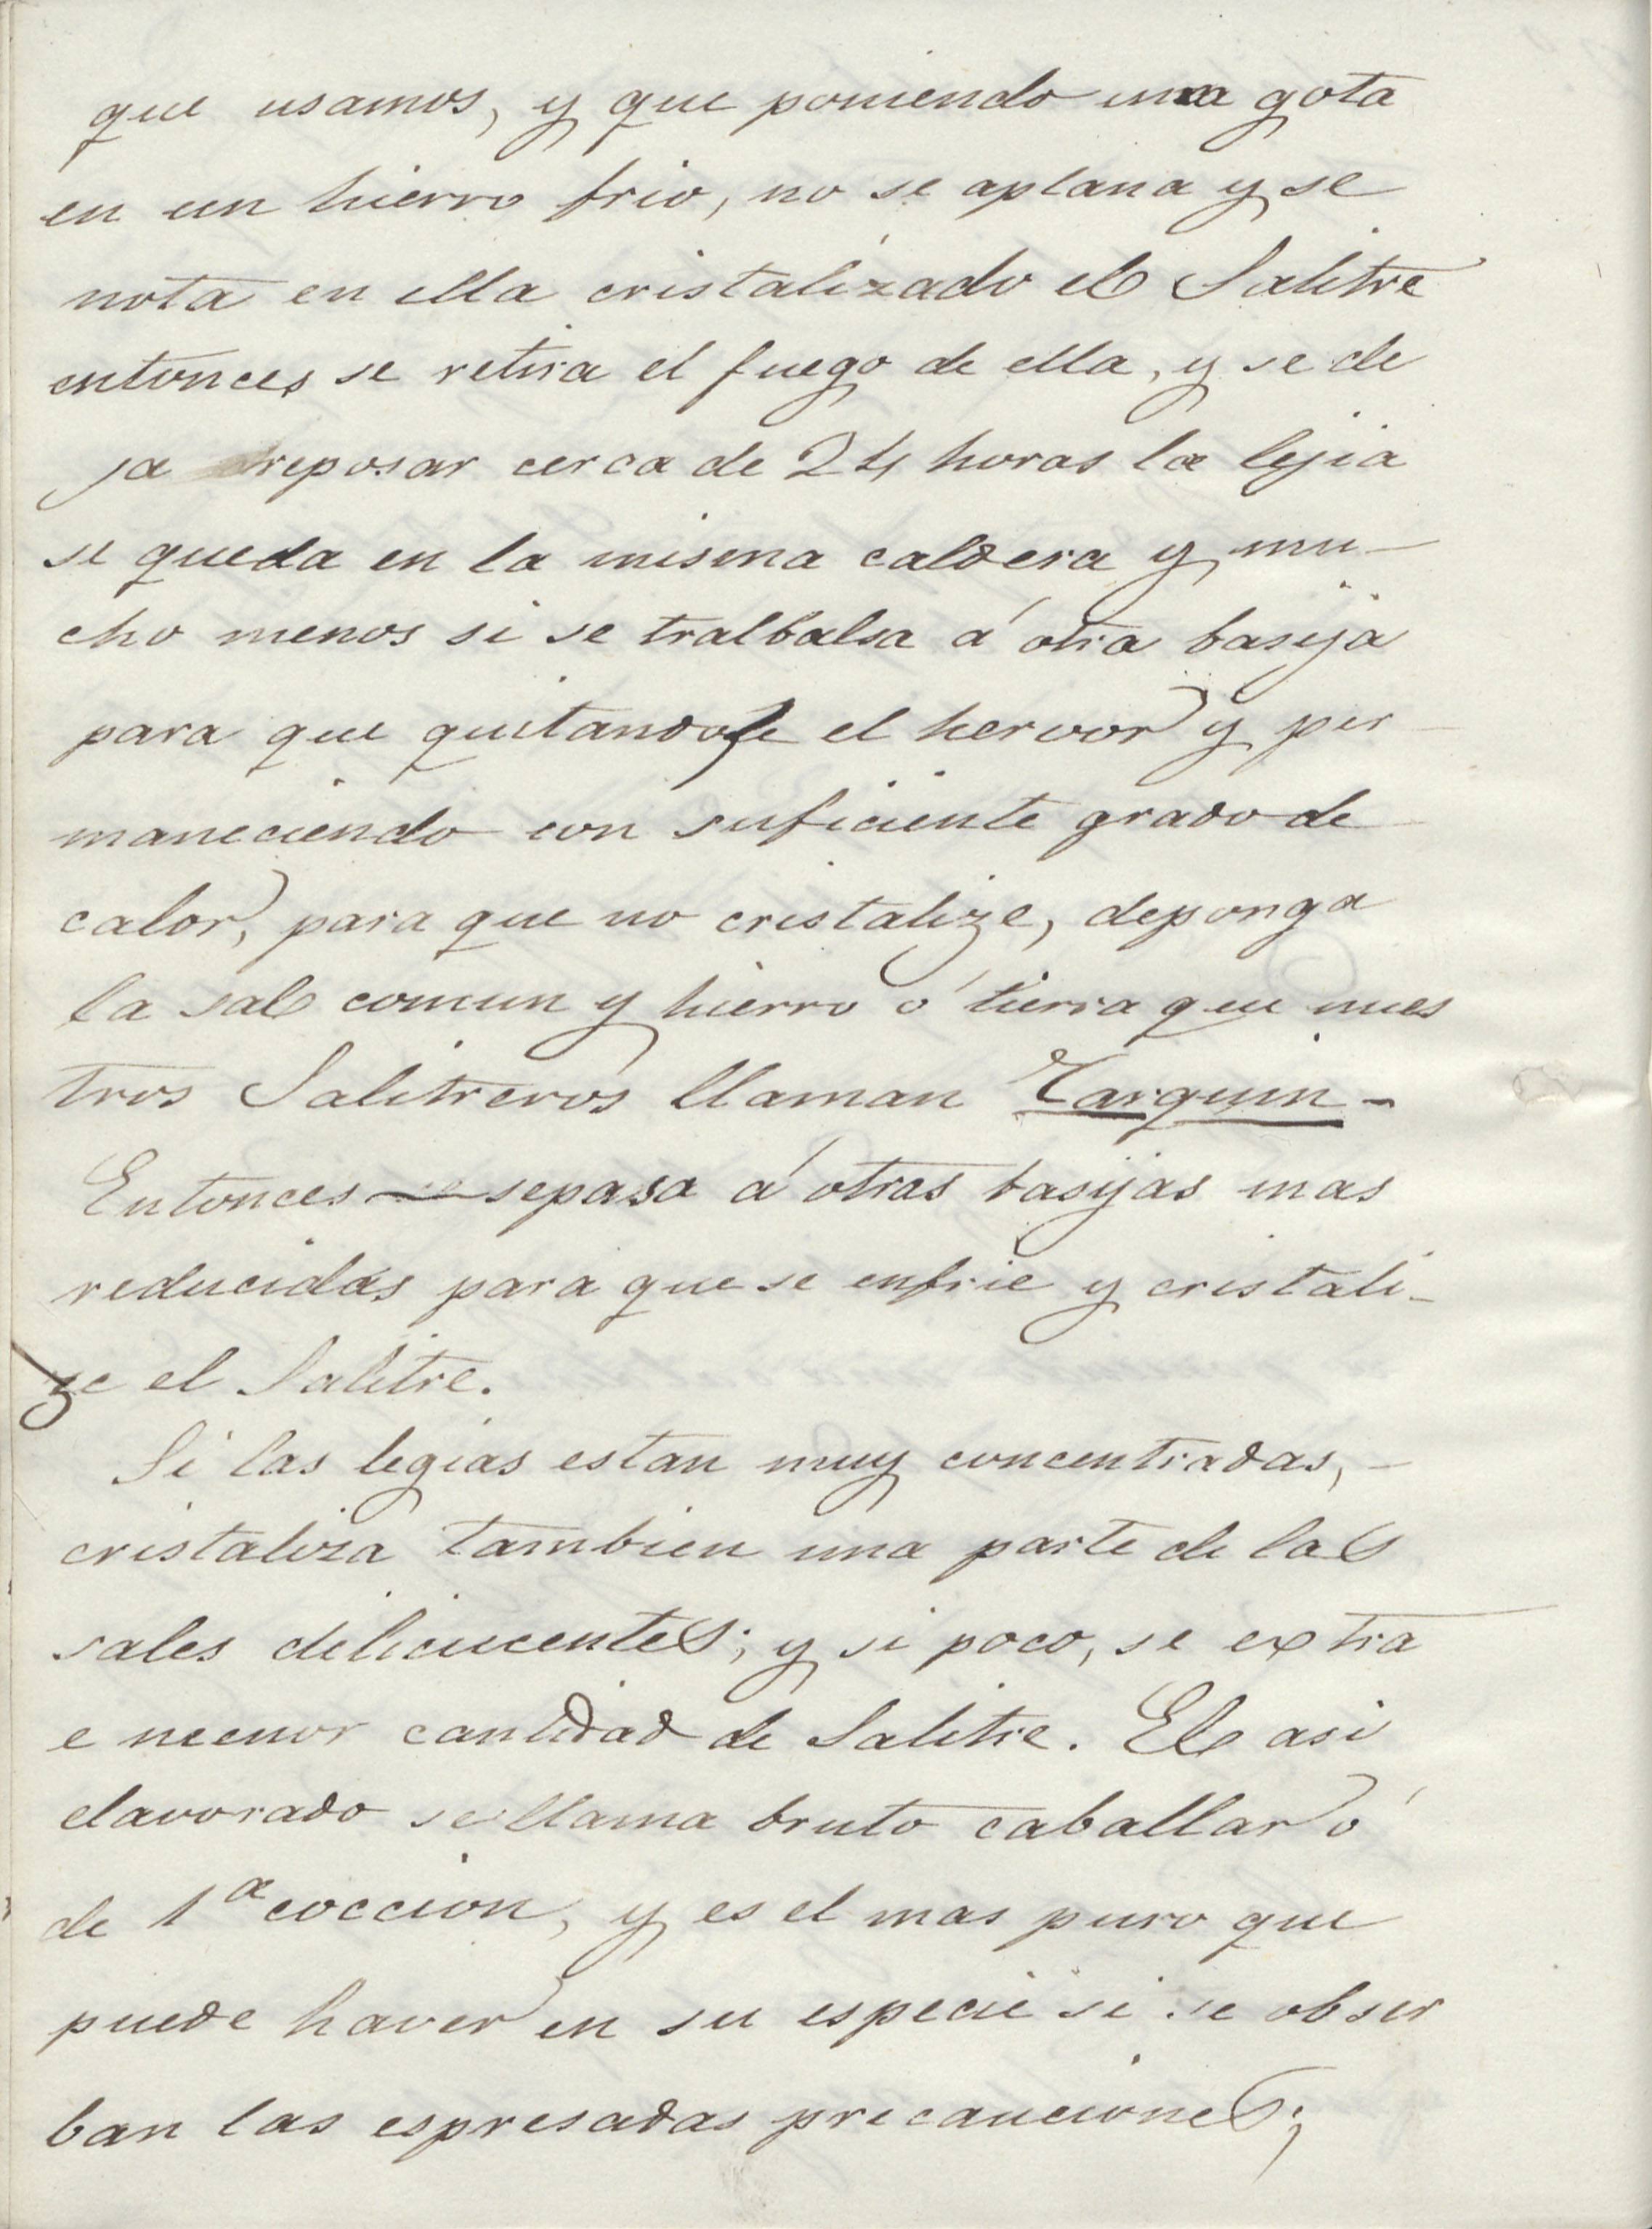 que usamos, y que poniendo una gota
en un hierro frio, no se aplana y se
nota en ella cristalizado el Salitre
entonces se retira el fuego de ella, y se de
ja reposar cerca de 24 horas la lejia
se queda en la misma caldera y mu-
cho menos si se tralbalsa á otra basija
para que quitandose el hervor y per
maneciendo con suficiente grado de
calor, para que no cristalize, deponga
la sal comun y hierro ó tierra que nues
tros Salitreros llaman Tarquin -
Entonces se pasa á otras basijas mas
reducidas para que se enfrie y cristali-
ze el Salitre.
Si las legias estan muy concentradas, -
cristaliza tambien una parte de las
sales delicuecentes; y si poco, se extra
e menor cantidad de Salitre. El asi
elavorado se llama bruto caballar ó
de 1ª coccion, y es el mas puro que
puede haver en su especie si se obser
ban las espresadas precauciones;